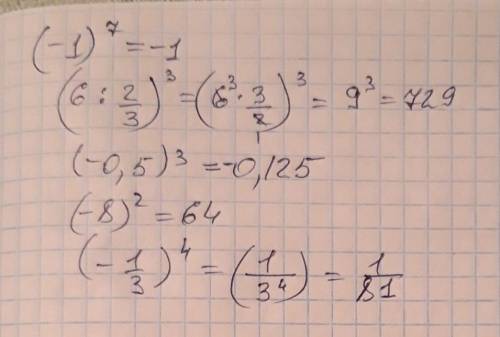 (-1)⁷ = -1
(6 : 2/3)³ = (6³ · 3/2₁)³ = 9³ = 729
(-0,5)³ = -0,125
(-8)² = 64
(-1/3)⁴ = (1/3⁴) = 1/81